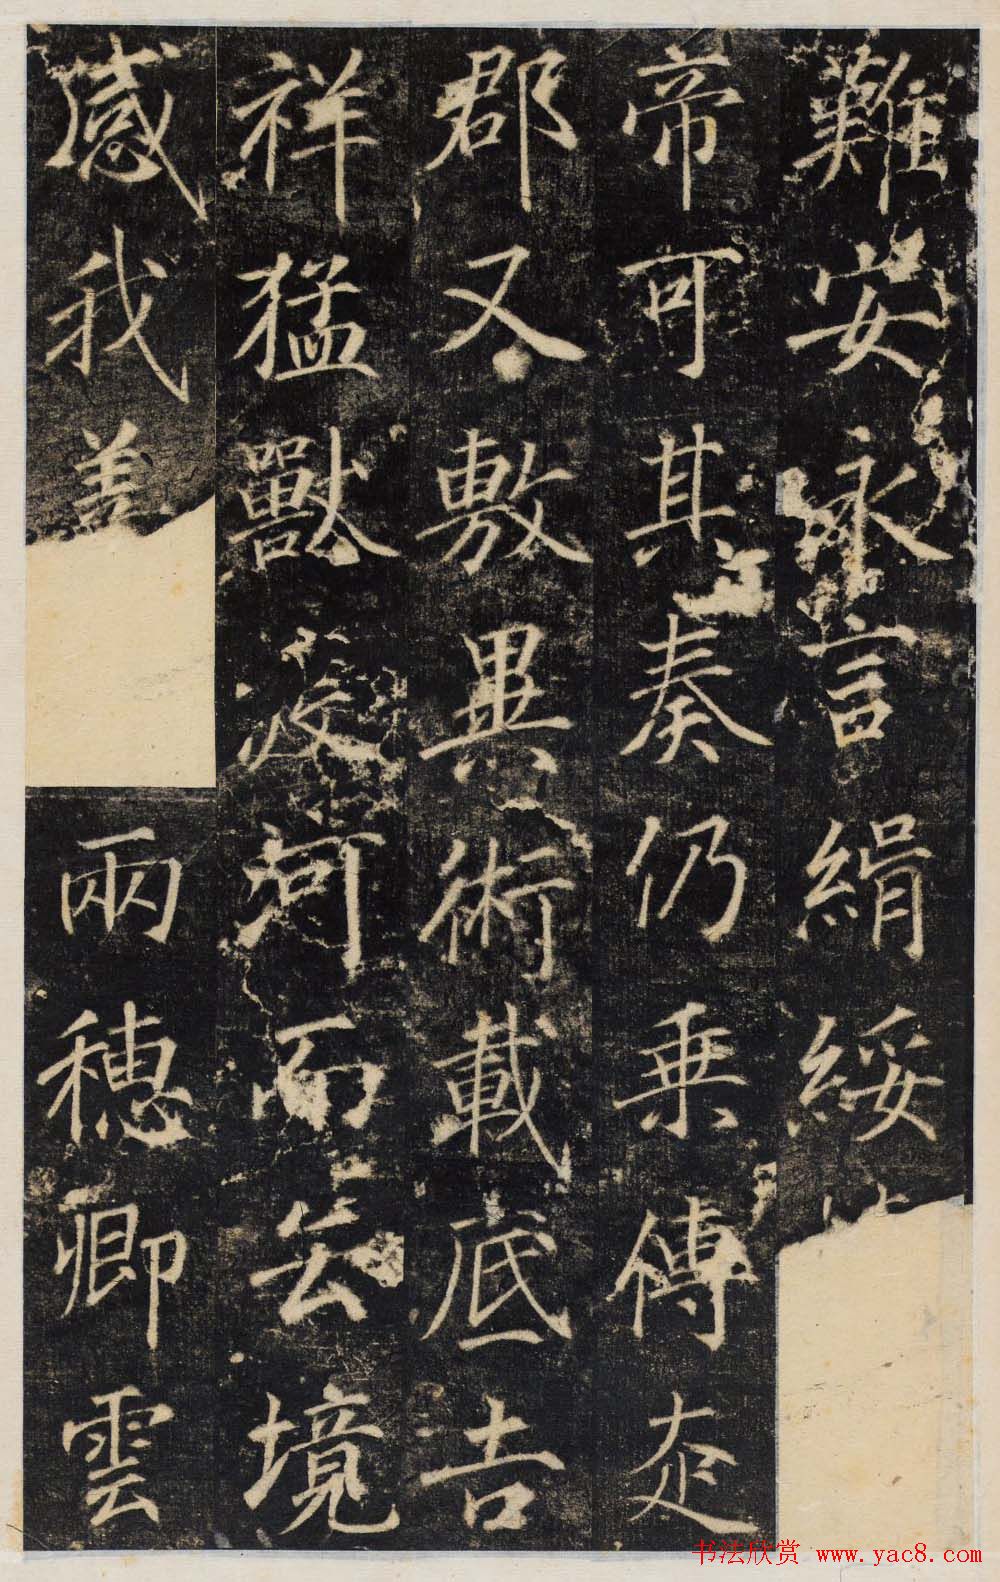 難安永言緝綏
帝可其奏仍乘傳赱
郡又敷異術載底吉
祥猛獸渡河而去境
感我善兩穗卿雲
书法欣赏 www.yac8.com